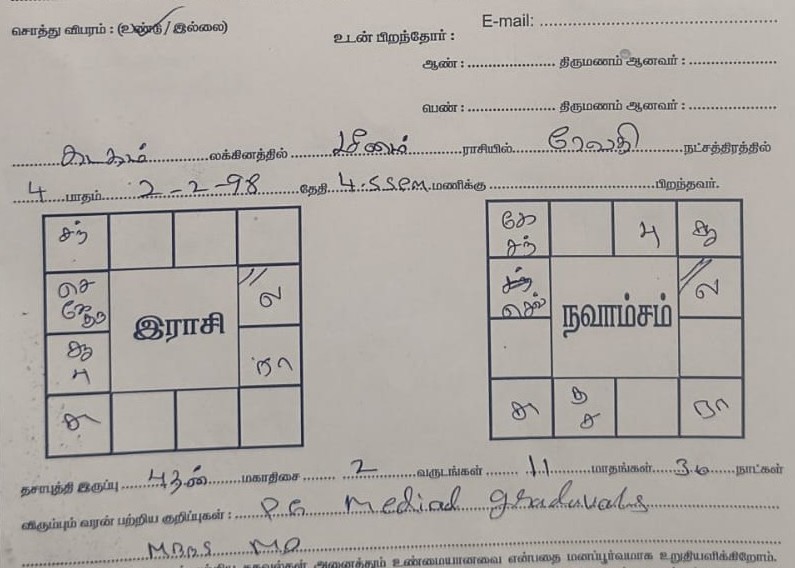 சொத்து விபரம் : (உண்டு / இல்லை)
E-mail:
உடன் பிறந்தோர் :
ஆண் : திருமணம் ஆனவர் :
பெண் : திருமணம் ஆனவர் :
கடகம் லக்கினத்தில் மீனம் ராசியில் ரேவதி நட்சத்திரத்தில்
4 பாதம் 2-2-98 தேதி 4.55 P.m. மணிக்கு பிறந்தவர்.
சந் கே சந் பு சூ
செ கே குரு ல செவ் ல
இராசி நவாம்சம்
சூ பு ரா
ச ச ரா
தசாபுத்தி இருப்பு புதன் மகாதிசை 2 வருடங்கள் 11 மாதங்கள் 30 நாட்கள்
விரும்பும் வரன் பற்றிய குறிப்புகள் : P.G Medial graduvats
MBBS MD
தகவல்கள் அனைத்தும் உண்மையானவை என்பதை மனப்பூர்வமாக உறுதியளிக்கிறோம்.